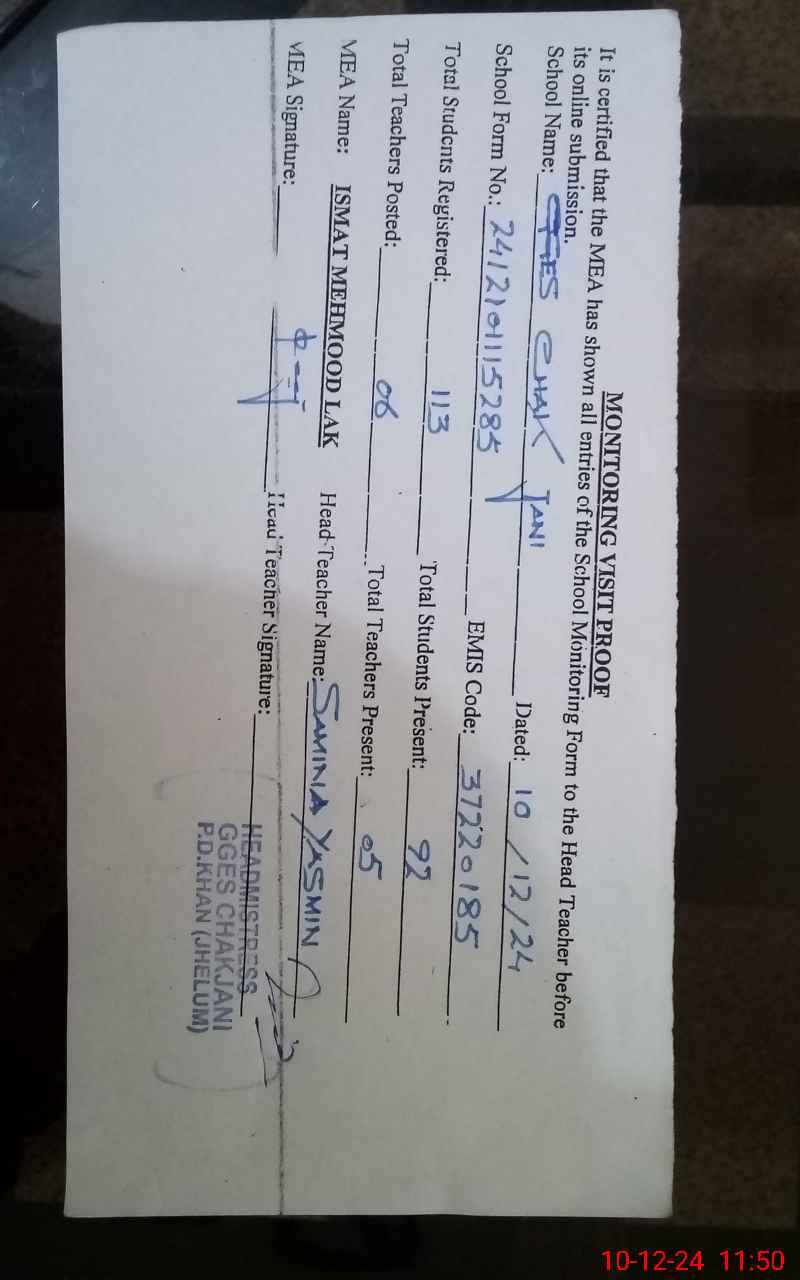 MONITORING VISIT PROOF
It is certified that the MEA has shown all entries of the School Monitoring Form to the Head Teacher before
its online submission.
School Name: GGES CHAK JANI Dated: 10/12/24
School Form No.: 2412101115285 EMIS Code: 37220185
Total Students Registered: 113 Total Students Present: 92
Total Teachers Posted: 06 Total Teachers Present: 05
MEA Name: ISMAT MEHMOOD LAK Head-Teacher Name: SAMINA YASMIN
MEA Signature: Head Teacher Signature:
HEADMISTRESS
GGES CHAKJANI
P.D.KHAN (JHELUM)
10-12-24 11:50